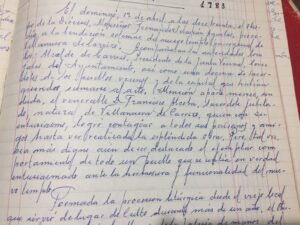 1788
El domingo, 12 de abril a las diez treinta, el obis-
po de la Diócesis, Monseñor Fernández y Fernández, proce-
dió a la bendición solemne del nuevo templo parroquial de
Villanueva de Carrizo. Acompañaban al
tes, Alcalde de Carrizo, Presidente de la Junta Vecinal, Conce-
jales del Ayuntamiento, así como una docena de sacer-
dotes de los pueblos vecinos y de la capital que habían
querido sumarse al acto. Mención aparte
duda, el venerable D. Francisco Alcoba, Sacerdote jubila-
do, natural de Villanueva de Carrizo, quien con su
entusiasmo, logró contagiar a todos sus paisanos y ami-
gos hasta ver realizada la espléndida obra. Por
no es más digno aun de ser destacado el ejemplar com-
portamiento de todo un pueblo que se sentía en verdad
entusiasmado ante la hermosura y funcionalidad del nue-
vo templo.
Formada la procesión litúrgica desde el viejo local
que sirvió de lugar de culto durante más de un año, el